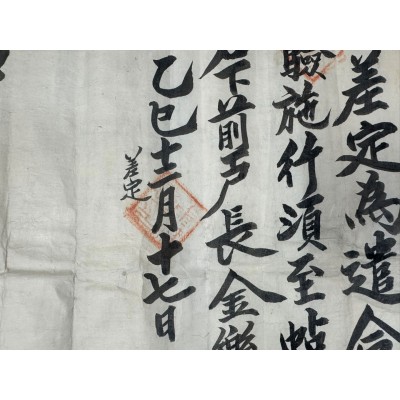 差定為遣合
驗施行須至帖
右下前戶長金
乙巳十二月十七日
差定